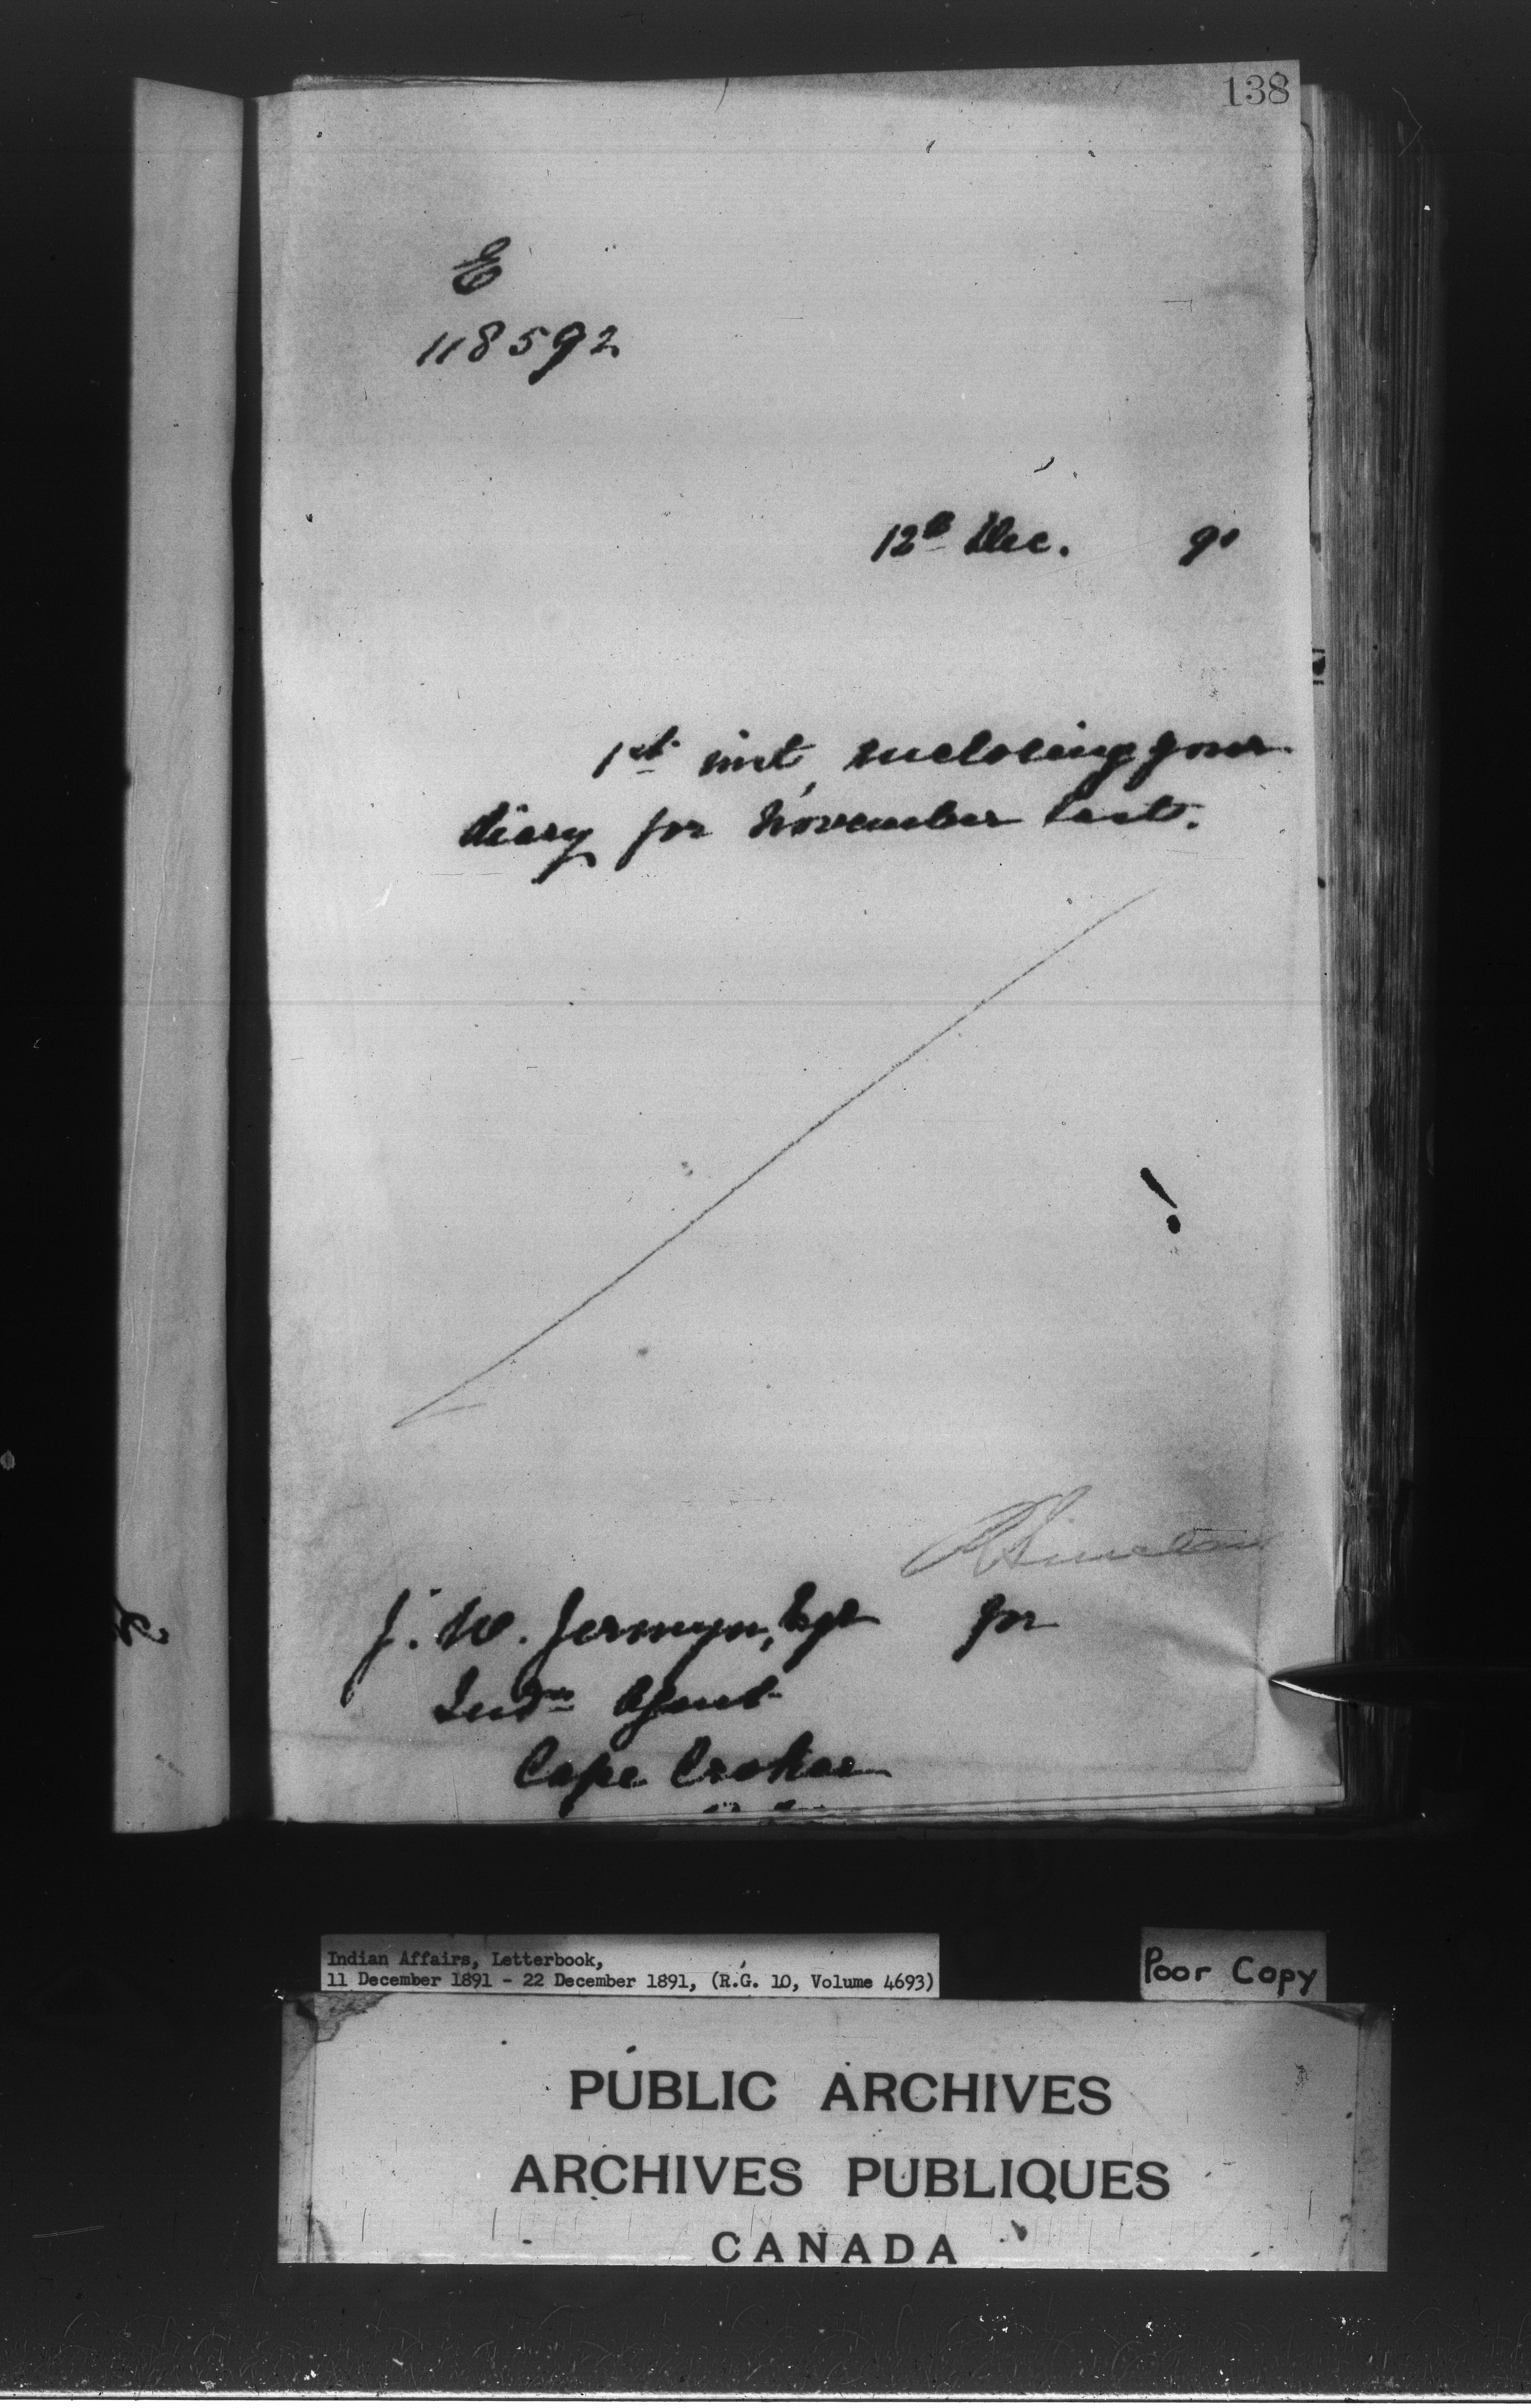 138
E
118592
12th Dec. 91
1st inst, enclosing your
diary for November last.
J. W. Jermyn, Esqr for
Indn Agent
Cape Croker
Indian Affairs, Letterbook,
11 December 1891 - 22 December 1891, (R.G. 10, Volume 4693)
Poor Copy
PUBLIC ARCHIVES
ARCHIVES PUBLIQUES
CANADA